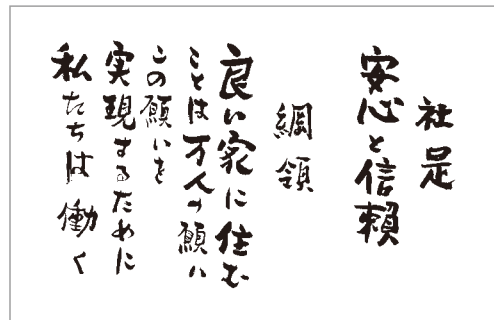 社足
安心と信頼
綱領
良い家に住む
ことは万人の願い
この願いを
実現するために
私たちは働く